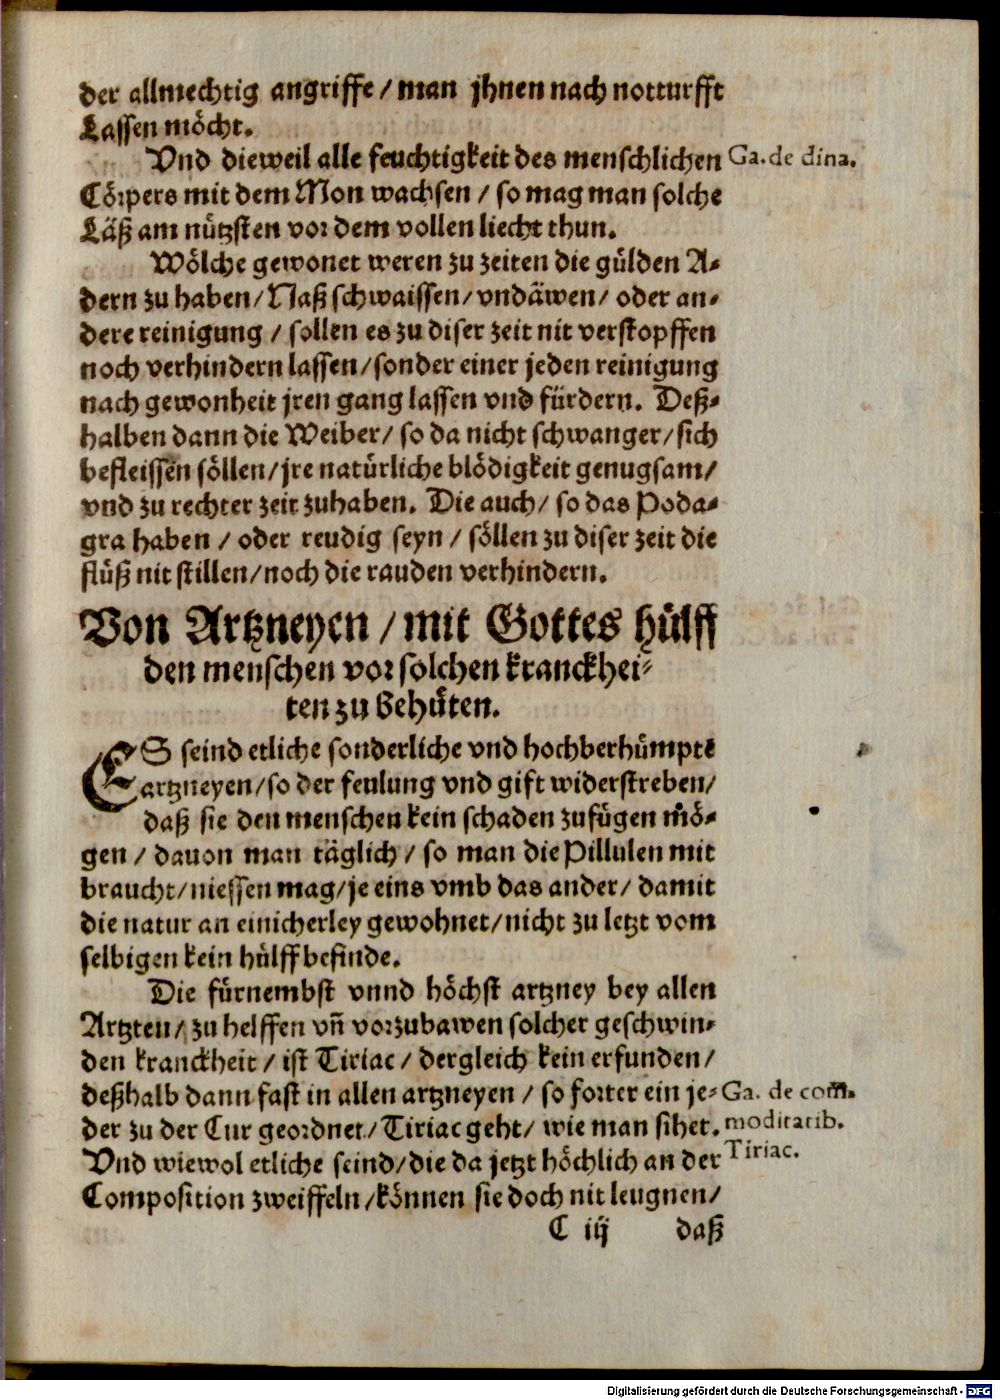 der allmechtig angriffe / man jhnen nach notturfft
Lassen möcht.
Vnd dieweil alle feuchtigkeit des menschlichen
Ga. de dina.
Cörpers mit dem Mon wachsen / so mag man solche
Läß am nützsten vor dem vollen liecht thun.
Wölche gewonet weren zu zeiten die gülden A⸗
dern zu haben / Naß schwaissen / vndäwen / oder an⸗
dere reinigung / sollen es zu diser zeit nit verstopffen
noch verhindern lassen / sonder einer jeden reinigung
nach gewonheit jren gang lassen vnd fürdern. Deß⸗
halben dann die Weiber / so da nicht schwanger / sich
befleissen söllen / jre natürliche blödigkeit genugsam /
vnd zu rechter zeit zuhaben. Die auch / so das Poda⸗
gra haben / oder reudig seyn / söllen zu diser zeit die
flüß nit stillen / noch die rauden verhindern.
Von Artzneyen / mit Gottes hülff
den menschen vor solchen kranckhei⸗
ten zu behüten.
ES seind etliche sonderliche vnd hochberhümpte
artzneyen / so der feulung vnd gift widerstreben /
daß sie den menschen kein schaden zufügen mö⸗
gen / dauon man täglich / so man die Pillulen mit
braucht / niessen mag / je eins vmb das ander / damit
die natur an einicherley gewohnet / nicht zu letzt vom
selbigen kein hülff befinde.
Die fürnembst vnnd höchst artzney bey allen
Artzten / zu helffen vñ vorzubawen solcher geschwin⸗
den kranckheit / ist Tiriac / dergleich kein erfunden /
deßhalb dann fast in allen artzneyen / so forter ein je⸗
Ga. de com̃.
der zu der Cur geordnet / Tiriac geht / wie man sihet.
moditatib.
Vnd wiewol etliche seind / die da jetzt höchlich an der
Tiriac.
Composition zweiffeln / können sie doch nit leugnen /
C iij daß
Digitalisierung gefördert durch die Deutsche Forschungsgemeinschaft - DFG